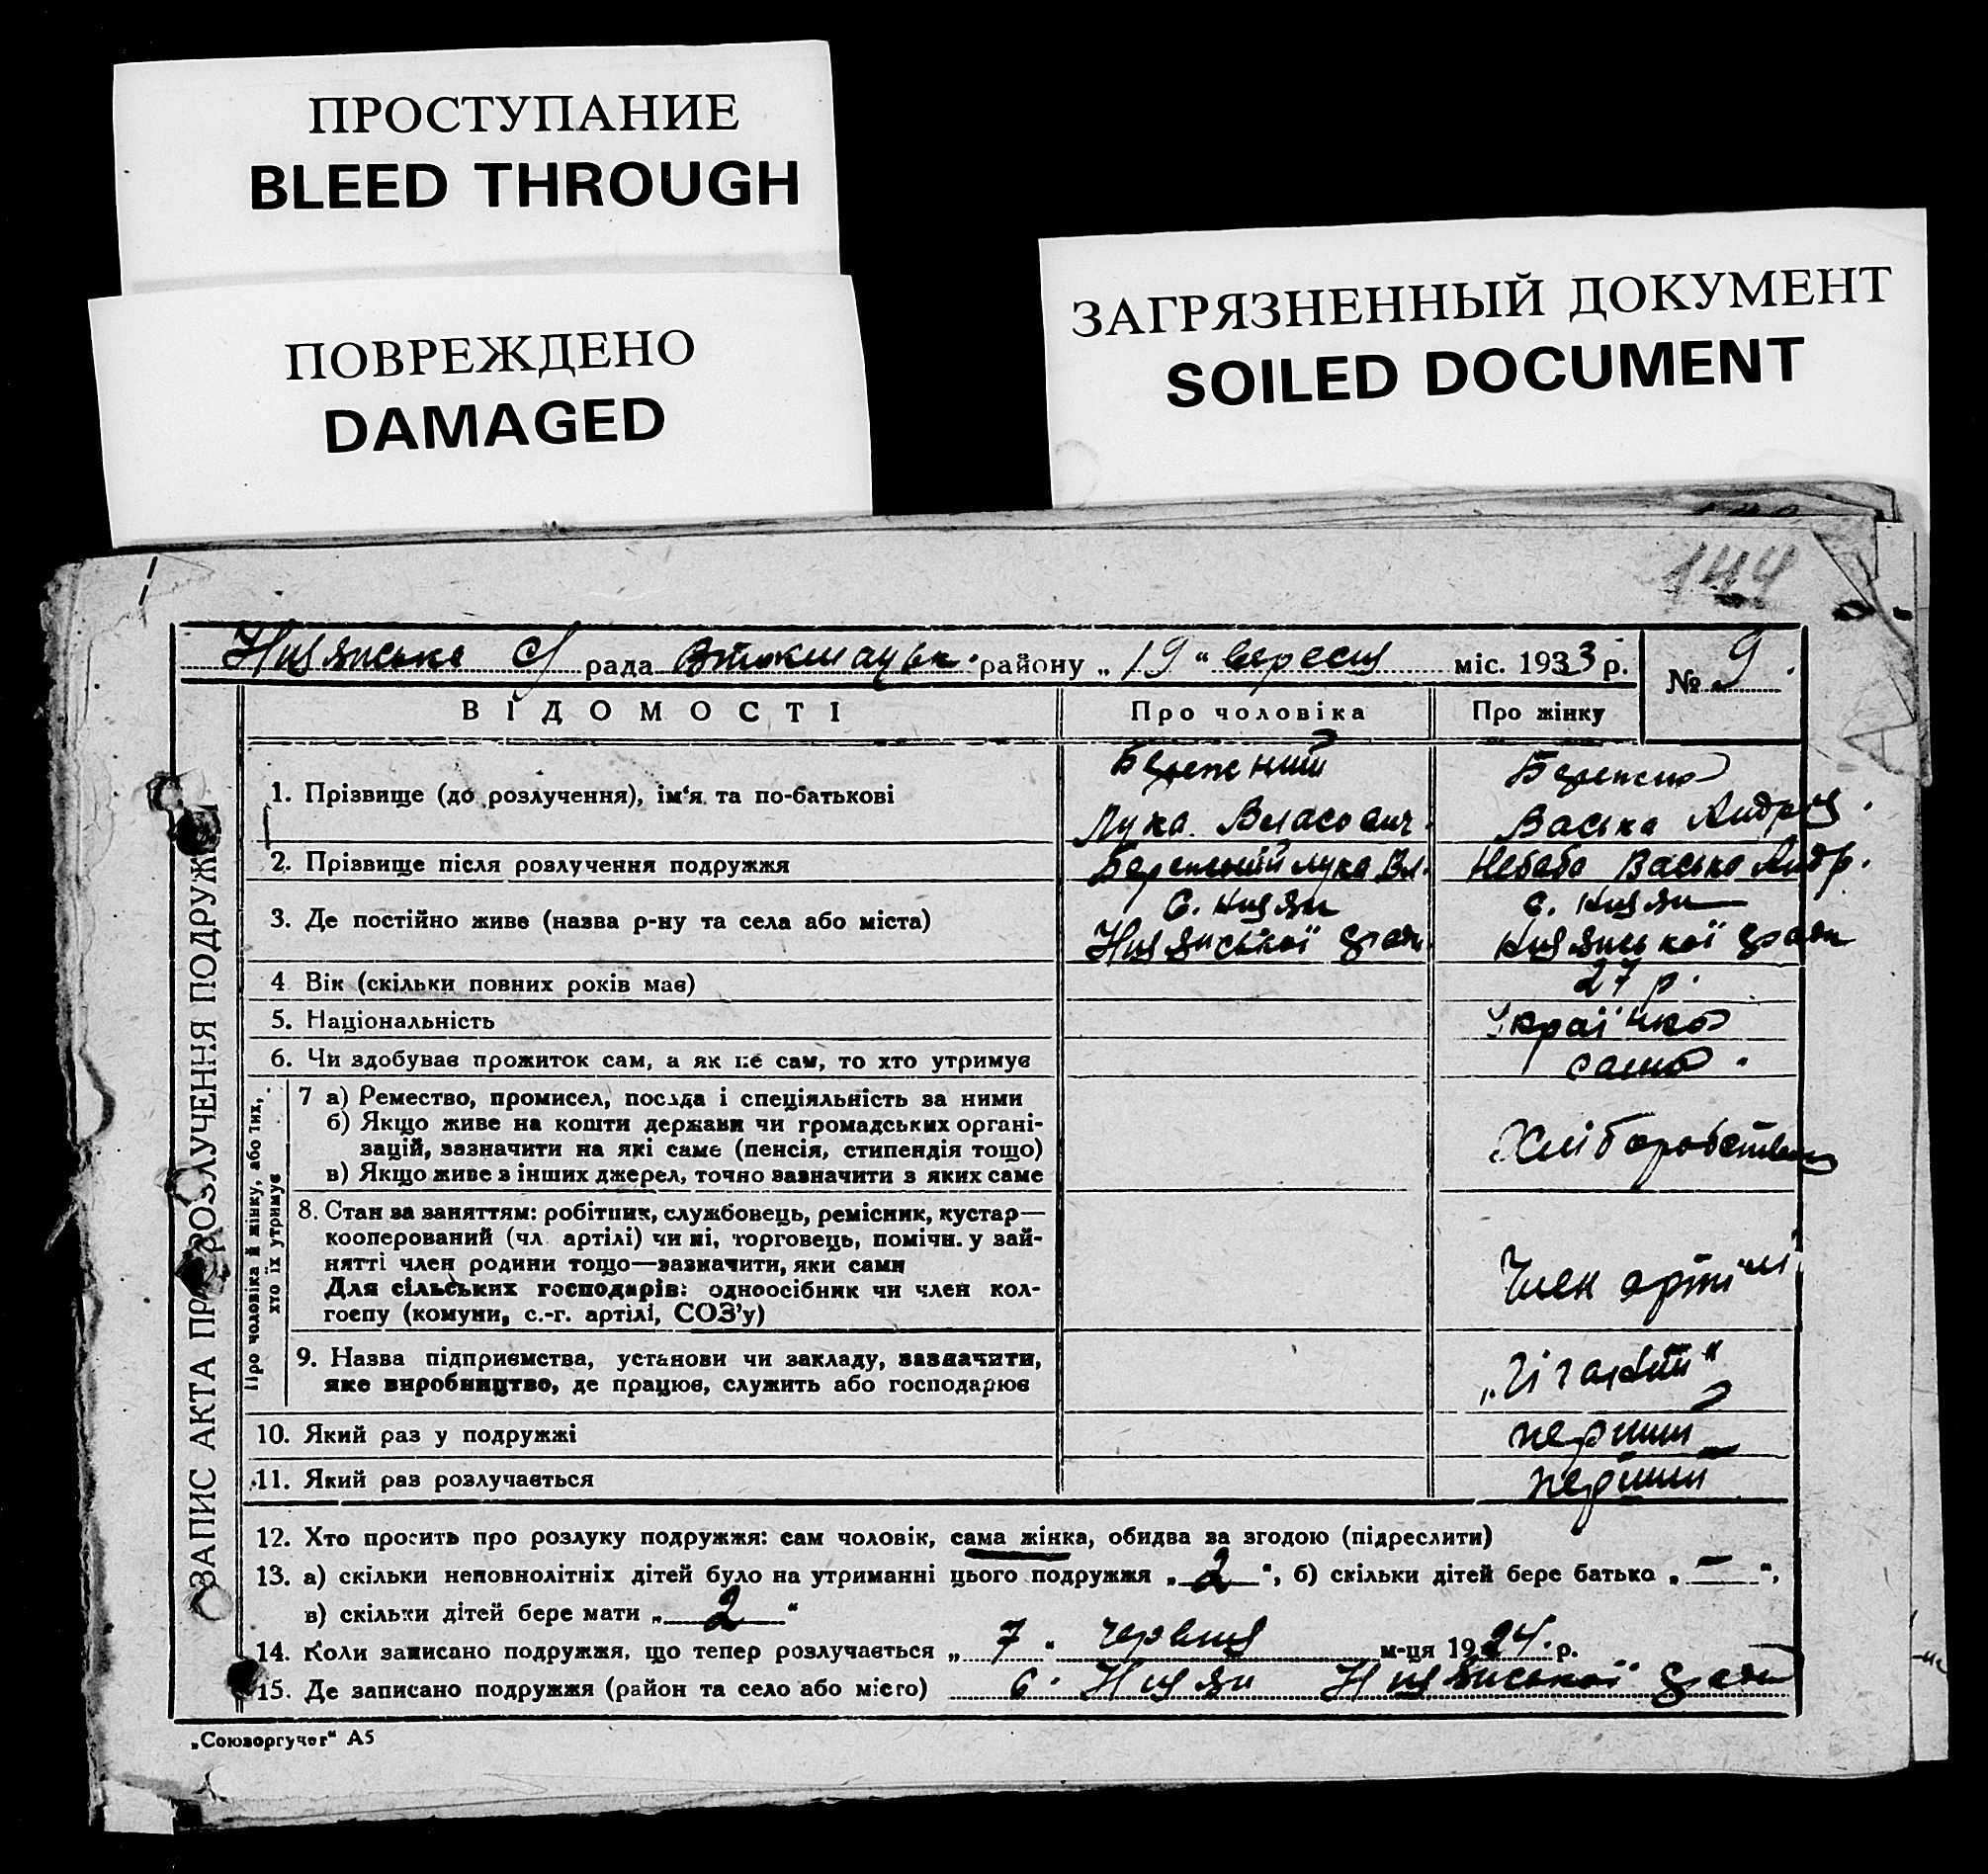 ПРОСТУПАНИЕ
BLEED THROUGH
ПОВРЕЖДЕНО
DAMAGED
ЗАГРЯЗНЕННЫЙ ДОКУМЕНТ
SOILED DOCUMENT
144
рада району „19“ вересня міс. 1933 р.
№ 9
ВІДОМОСТІ
Про чоловіка
Про жінку
ЗАПИС АКТА ПРО РОЗЛУЧЕННЯ ПОДРУЖЖЯ
1. Прізвище (до розлучення), ім‘я та по-батькові
Бережний
Лука Власович
Бережна
Васька Андр
2. Прізвище після розлучення подружжя
Бережний Лука Вл.
Небаба Васька Андр.
3. Де постійно живе (назва р-ну та села або міста)
4 Вік (скільки повних років має)
27 р.
5. Національність
Українка
6. Чи здобуває прожиток сам, а як не сам, то хто утримує
сама.
Про чоловіка й жінку, або їих,
хто їх утримує
7 а) Ремество, промисел, посада і спеціяльність за ними
б) Якщо живе на кошти держави чи громадських органі-
зацій, зазначити на які саме (пенсія, стипендія тощо)
в) Якщо живе з інших джерел, точно зазначити з яких саме
Хліборобство
8. Стан за заняттям: робітник, службовець, ремісник, кустар—
кооперований (чл артілі) чи ні, торговець, помічн. у зай-
нятті член родини тощо—зазначити, яки сами
Для сільських господарів: одноосібник чи член кол-
госпу (комуни, с.-г. артілі, СОЗ’у)
Член артілі
9. Назва підприємства, установи чи закладу, зазначити,
яке виробництво, де працює, служить або господарює
„Гігант“
10. Який раз у подружжі
перший
11. Який раз розлучається
перший
12. Хто просить про розлуку подружжя: сам чоловік, сама жінка, обидва за згодою (підреслити)
13. а) скільки неповнолітніх дітей було на утриманні цього подружжя „2“, б) скільки дітей бере батько „—“,
в) скільки дітей бере мати „2“
14. Коли записано подружжя, що тепер розлучається „7“ червня м-ця 1924 р.
15. Де записано подружжя (район та село або місто) с.
„Союзоргучот“ А5